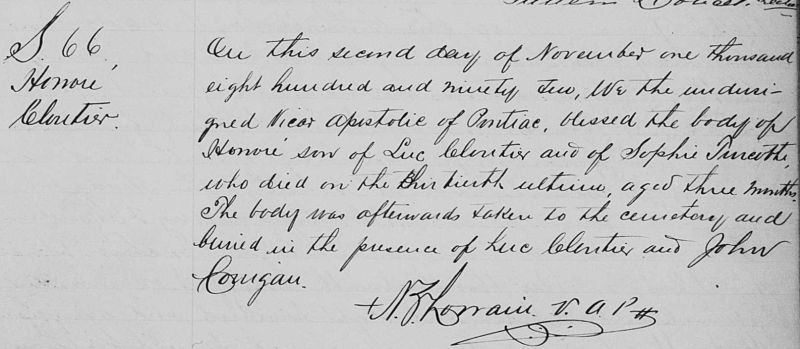 S. 66,
Honoré
Cloutier.
On this second day of November one thousand
eight hundred and ninety two, We the undersi-
gned Vicar Apostolic of Pontiac, blessed the body of
Honoré son of Luc Cloutier and of Sophie Turcotte,
who died on the thirtieth ultimo, aged three months.
The body was afterwards taken to the cemetery and
buried in the presence of Luc Cloutier and John
Corrigan.
+ N. Z. Lorrain. V. A. P.